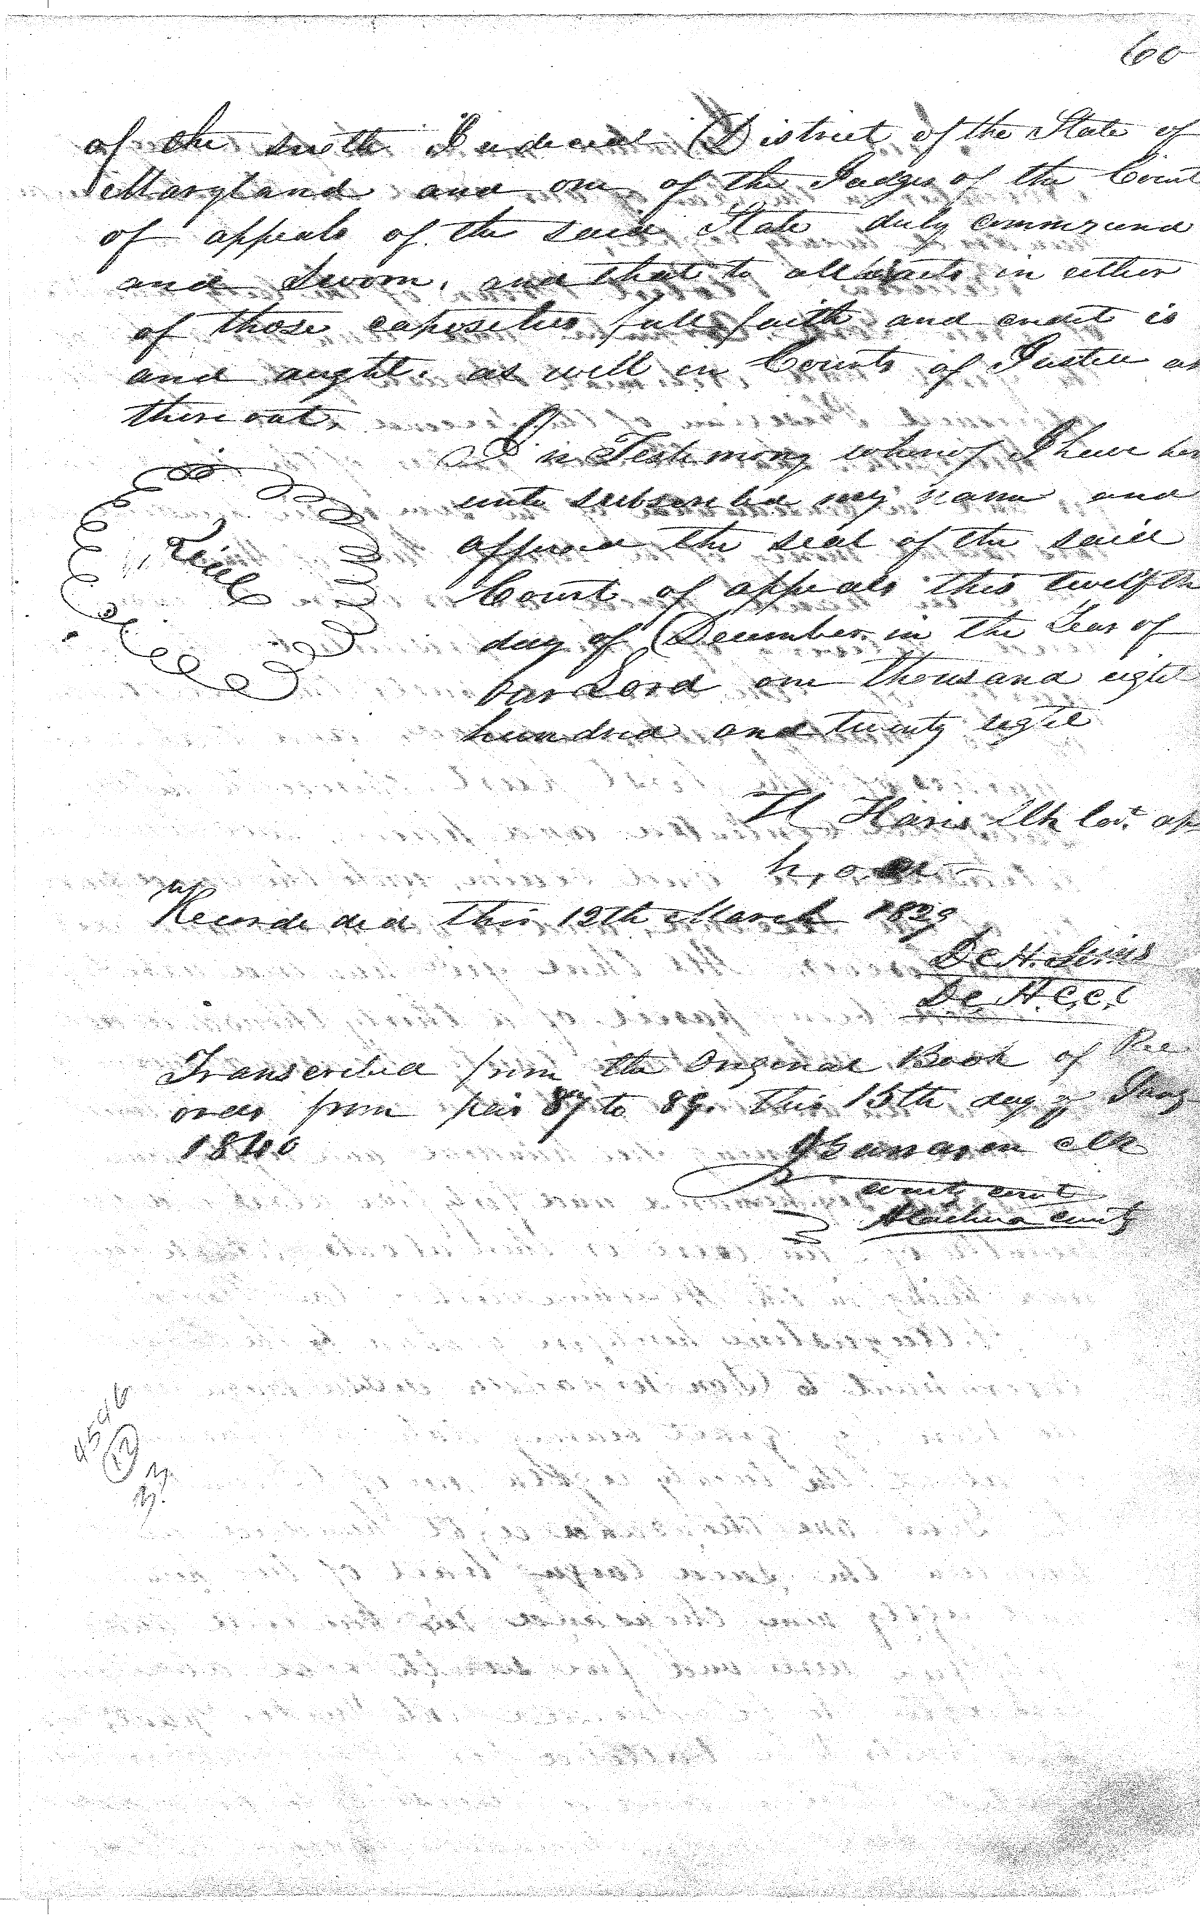 60
of the sixth Judecial District of the State of
Maryland and one of the Judges of the Court
of appeals of the said State duly
and Sworn, and that to all acts in either
of those capasities full faith and credit is
and aught. as well in Courts of Justice as
there out,
In Testimony whereof I have her
unto subscribed my name and
affixed the seal of the said
Court of appeals this twelfth
day of December in the Year of
our Lord one thousand eight
hundred and twenty eight
Seal
Th Haris Clk Cort. ap
Recorded this 12th March 1829
De H. Sims
D.c. H.C.c.c
Transcribed from the Original Book of Rec
ords from pais 87 to 89. this 15th day of Jany
1840
clk
county court
Alachua county
4546
12
33